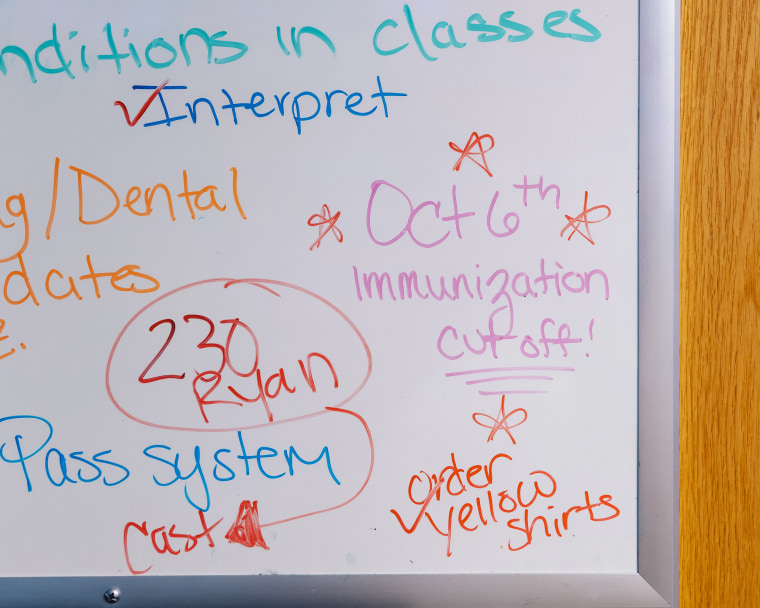 nditions in classes
✓Interpret
g/Dental
dates
e.
Oct 6th
Immunization
cut off!
230
Ryan
Pass system
Cast
order
✓yellow
shirts